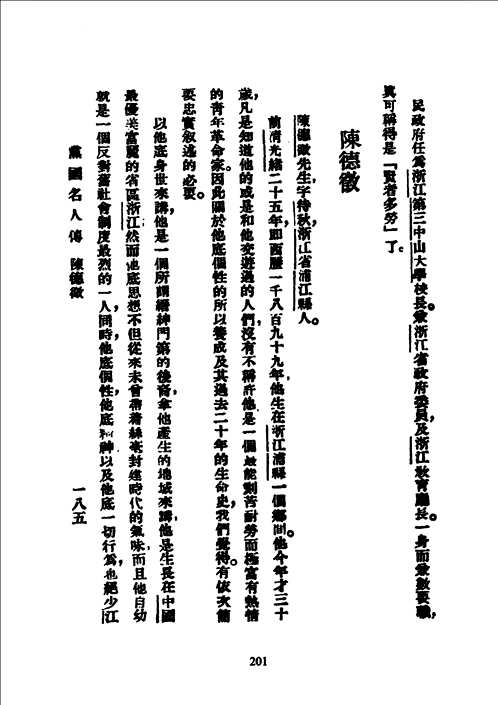 民政府任為浙江第三中山大學校長，兼浙江省政府委員，及浙江教育廳長。一身而兼數要職，
眞可稱得是「賢者多勞」了。
陳德徵
陳德徵先生，字待秋，浙江省浦江縣人。
前清光緒二十五年，即西歷一千八百九十九年，他生在浙江浦縣一個鄉間。他今年才三十
歲，凡是知道他的或是和他交遊過的人們，沒有不稱許他是一個最能刻苦耐勞而極富有熱情
的青年革命家。因此關於他底個性的所以養成及其過去二十年的生命史，我們覺得有依次簡
要忠實叙述的必要。
以他底身世來講，他是一個所謂縉紳門第的後裔，拿他產生的地域來講，他是生長在中國
最優美富麗的省區浙江，然而他底思想不但從來未曾帶着絲毫封建時代的氣味，而且他自幼
就是一個反對舊社會制度最烈的一人，同時，他底個性，他底精神以及他底一切行為，也絕少江
黨國名人傳 陳德徵
一八五
201